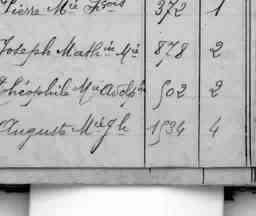 Pierre Mie Fçois 372 1
Joseph Mathin Mie 878 2
Théophile Mie Adolphe 502 2
Auguste Mie Jh 1534 4